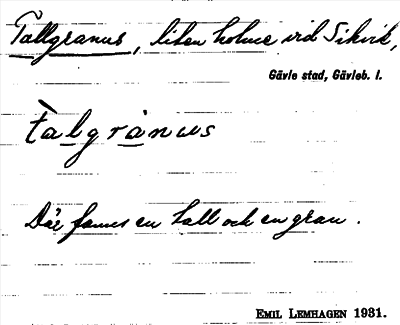 Tallgranus, liten holme vid Sikvik,
Gävle stad, Gävleb. l.
talgrànus
Där fanns en tall och en gran.
EMIL LEMHAGEN 1931.